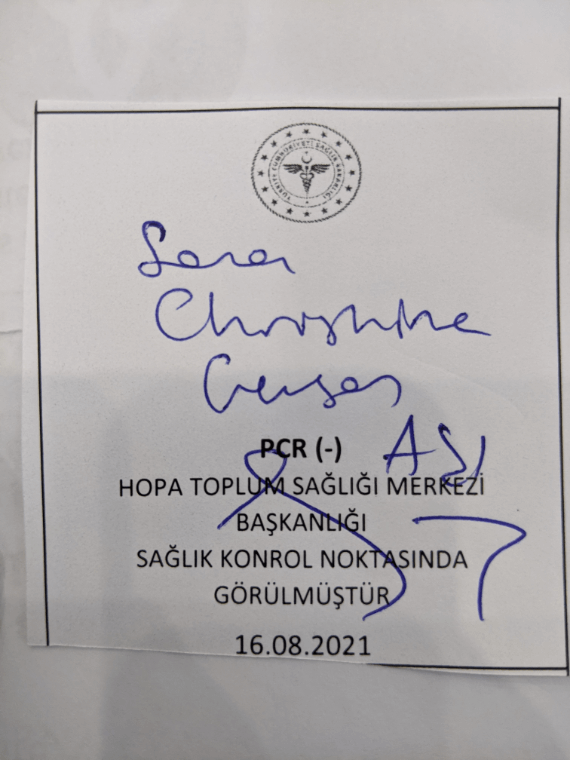 TÜRKİYE CUMHURİYETİ SAĞLIK BAKANLIĞI
Sara
Christine
PCR (-) AŞI
HOPA TOPLUM SAĞLIĞI MERKEZİ
BAŞKANLIĞI
SAĞLIK KONROL NOKTASINDA
GÖRÜLMÜŞTÜR
16.08.2021